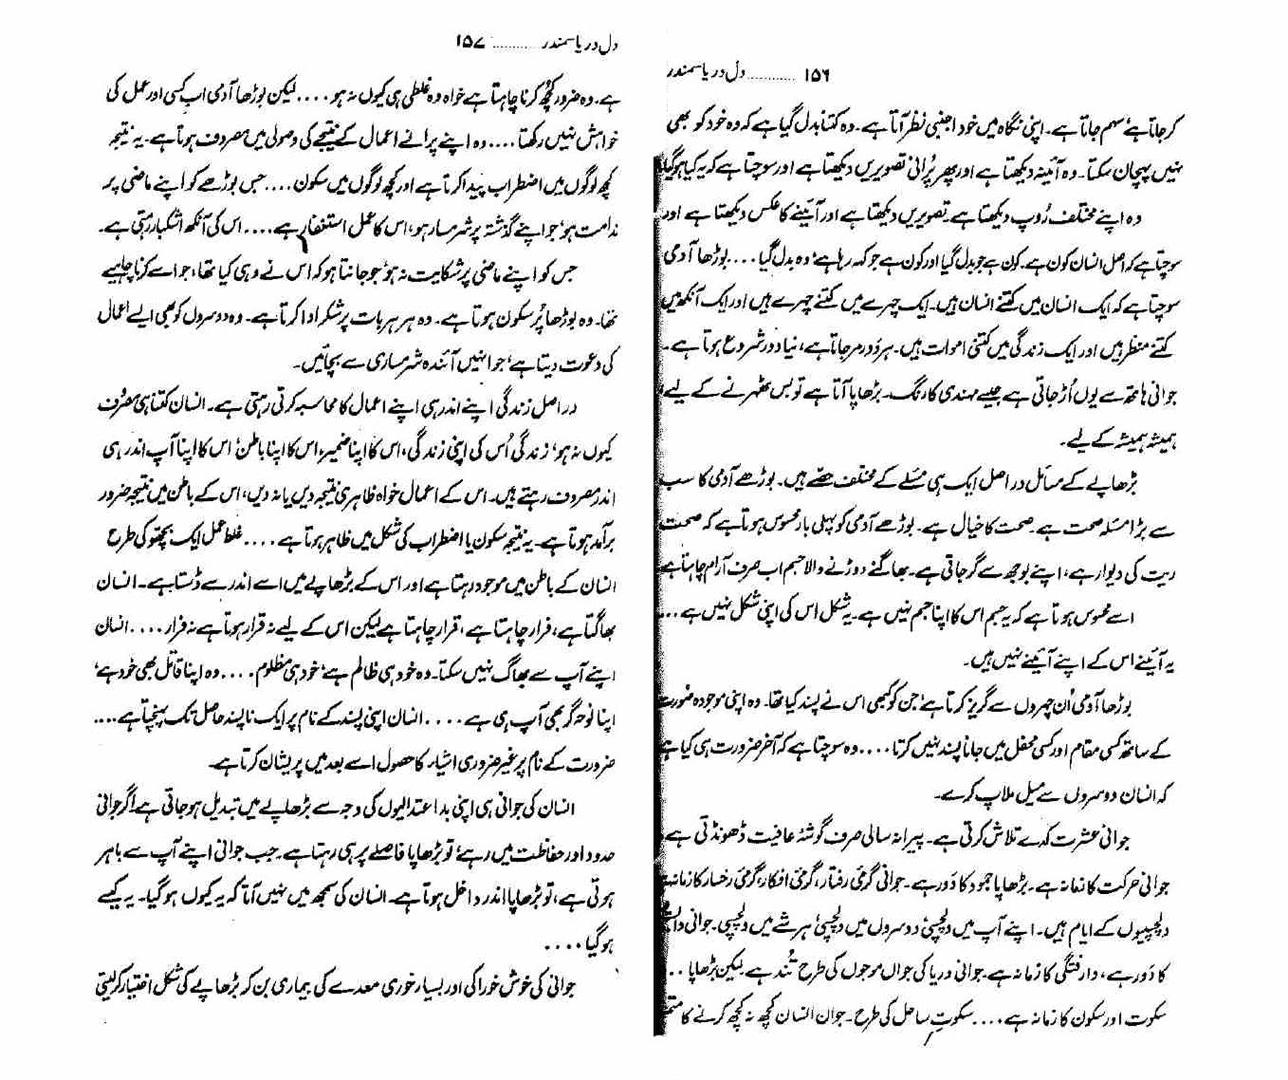 ۱۵۶ ............ دل دریا سمندر
کر جاتا ہے، سہم جاتا ہے۔ اپنی نگاہ میں خود اجنبی نظر آتا ہے۔ وہ کتنا بدل گیا ہے کہ وہ خود کو بھی
نہیں پہچان سکتا۔ وہ آئینہ دیکھتا ہے اور پھر پُرانی تصویریں دیکھتا ہے اور سوچتا ہے کہ یہ کیا ہو گیا
وہ اپنے مختلف رُوپ دیکھتا ہے۔ تصویریں دیکھتا ہے اور آئینے کا عکس دیکھتا ہے اور
سوچتا ہے کہ اصل انسان کون ہے۔ کون ہے جو بدل گیا اور کون ہے جو کہہ رہا ہے، وہ بدل گیا .... بوڑھا آدمی
سوچتا ہے کہ ایک انسان میں کتنے انسان ہیں۔ ایک چہرے میں کتنے چہرے ہیں اور ایک آنکھ میں
کتنے منظر ہیں اور ایک زندگی میں کتنی اموات ہیں۔ ہر دَور مر جاتا ہے، نیا دور شروع ہوتا ہے۔
جوانی ہاتھ سے یوں اُڑ جاتی ہے جیسے مہندی کا رنگ۔ بڑھاپا آتا ہے تو بس ٹھہرنے کے لیے،
ہمیشہ ہمیشہ کے لیے۔
بڑھاپے کے مسائل در اصل ایک ہی مسئلے کے مختلف حصّے ہیں۔ بوڑھے آدمی کا سب
سے بڑا مسئلہ صحت ہے۔ صحت کا خیال ہے۔ بوڑھے آدمی کو پہلی بار محسوس ہوتا ہے کہ صحت
ریت کی دیوار ہے، اپنے بوجھ سے گر جاتی ہے۔ بھاگنے دوڑنے والا جسم اب صرف آرام چاہتا ہے
اسے محسوس ہوتا ہے کہ یہ جسم اس کا اپنا جسم نہیں ہے۔ یہ شکل اس کی اپنی شکل نہیں ہے ...
یہ آئینے اس کے اپنے آئینے نہیں ہیں۔
بوڑھا آدمی اُن چہروں سے گریز کرتا ہے، جن کو کبھی اس نے پسند کیا تھا۔ وہ اپنی موجودہ صُورت
کے ساتھ کسی مقام اور کسی محفل میں جانا پسند نہیں کرتا .... وہ سوچتا ہے کہ آخر ضرورت ہی کیا ہے
کہ انسان دوسروں سے میل ملاپ کرے۔
جوانی عشرت کدے تلاش کرتی ہے۔ پیرانہ سالی صرف گوشۂ عافیت ڈھونڈتی ہے
جوانی حرکت کا زمانہ ہے۔ بڑھاپا جمود کا دَور ہے۔ جوانی گرمئ رفتار، گرمئ افکار، گرمئ رخسار کا زمانہ
دلچسپیوں کے ایام ہیں۔ اپنے آپ میں دلچسپی، دوسروں میں دلچسپی، ہر شے میں دلچسپی۔ جوانی
کا دَور ہے، وارفتگی کا زمانہ ہے۔ جوانی دریا کی جواں موجوں کی طرح تُند ہے لیکن بڑھاپا ..
سکوت اور سکون کا زمانہ ہے .... سکوتِ ساحل کی طرح۔ جوان انسان کچھ نہ کچھ کرنے کا
دل دریا سمندر .......... ۱۵۷
ہے۔ وہ ضرور کچھ کرنا چاہتا ہے خواہ وہ غلطی ہی کیوں نہ ہو .... لیکن بوڑھا آدمی اب کسی اور عمل کی
خواہش نہیں رکھتا .... وہ اپنے پرانے اعمال کے نتیجے کی وصولی میں مصروف ہوتا ہے۔ یہ نتیجہ
کچھ لوگوں میں اضطراب پیدا کرتا ہے اور کچھ لوگوں میں سکون .... جس بوڑھے کو اپنے ماضی پر
ندامت ہو، جو اپنے گذشتہ پر شرمسار ہو، اس کا عمل استغفار ہے .... اس کی آنکھ اشکبار رہتی ہے۔
جس کو اپنے ماضی پر شکایت نہ ہو، جو جانتا ہو کہ اس نے وہی کیا تھا، جو اسے کرنا چاہیے
تھا۔ وہ بوڑھا پُر سکون ہوتا ہے۔ وہ ہر ہر بات پر شکر ادا کرتا ہے۔ وہ دوسروں کو بھی ایسے اعمال
کی دعوت دیتا ہے، جو انہیں آئندہ شرمساری سے بچائیں۔
در اصل زندگی اپنے اندر ہی اپنے اعمال کا محاسبہ کرتی رہتی ہے۔ انسان کتنا ہی مصرُوف
کیوں نہ ہو، زندگی اُس کی اپنی زندگی، اس کا اپنا ضمیر، اس کا اپنا باطن، اس کا اپنا آپ اندر ہی
اندر مصروف رہتے ہیں۔ اس کے اعمال خواہ ظاہری نتیجہ دیں یا نہ دیں، اس کے باطن میں نتیجہ ضرور
برآمد ہوتا ہے۔ یہ نتیجہ سکون یا اضطراب کی شکل میں ظاہر ہوتا ہے .... غلط عمل ایک بچھّو کی طرح
انسان کے باطن میں موجود رہتا ہے اور اس کے بڑھاپے میں اسے اندر سے ڈستا ہے۔ انسان
بھاگتا ہے، فرار چاہتا ہے، قرار چاہتا ہے لیکن اس کے لیے نہ قرار ہوتا ہے نہ فرار .... انسان
اپنے آپ سے بھاگ نہیں سکتا۔ وہ خود ہی ظالم ہے، خود ہی مظلوم .... وہ اپنا قاتل بھی خود ہے،
اپنا نوحہ گر بھی آپ ہی ہے .... انسان اپنی پسند کے نام پر ایک ناپسند حاصل تک پہنچتا ہے ....
ضرورت کے نام پر غیر ضروری اشیاء کا حصول اسے بعد میں پریشان کرتا ہے۔
انسان کی جوانی ہی اپنی بد اعتدالیوں کی وجہ سے بڑھاپے میں تبدیل ہو جاتی ہے۔ اگر جوانی
حدود اور حفاظت میں رہے، تو بڑھاپا فاصلے پر ہی رہتا ہے۔ جب جوانی اپنے آپ سے باہر
ہوتی ہے، تو بڑھاپا اندر داخل ہوتا ہے۔ انسان کی سمجھ میں نہیں آتا کہ یہ کیوں ہو گیا۔ یہ کیسے
ہو گیا ....
جوانی کی خوش خوراکی اور بسیار خوری معدے کی بیماری بن کر بڑھاپے کی شکل اختیار کر لیتی